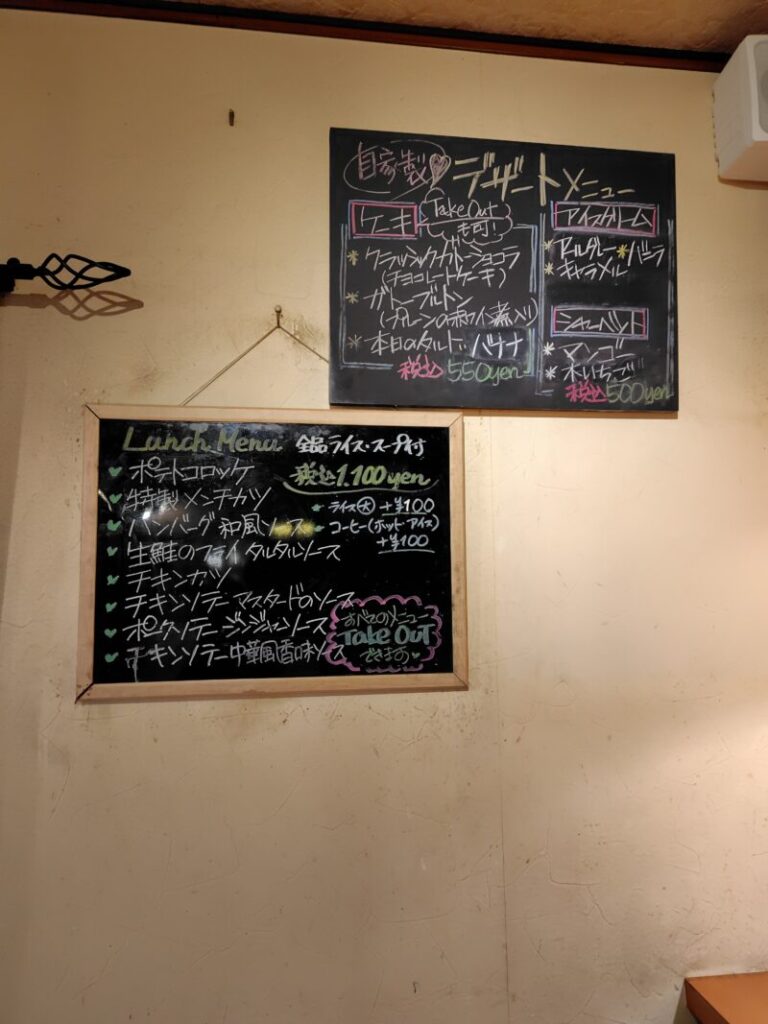 自家製♥デザートメニュー
ケーキ
Take Out
も可!
* クラッシックガトーショコラ
(チョコレートケーキ)
* ガトーブルトン
(プルーンの赤ワイン煮入り)
* 本日のタルト バナナ
税込 550yen
アイスクリーム
* アールグレー * バニラ
* キャラメル
シャーベット
* マンゴー
* 木いちご
税込 500yen
Lunch Menu 全品ライス・スープ付
税込 1.100yen
♥ ポテトコロッケ
♥ 特製メンチカツ
♥ ハンバーグ 和風ソース
♥ 生鮭のフライ タルタルソース
♥ チキンカツ
♥ チキンソテー マスタードのソース
♥ ポークソテー ジンジャーソース
♥ チキンソテー 中華風香味ソース
* ライス大 +¥100
* コーヒー(ホット・アイス)
+¥100
すべてのメニュー
Take Out
できます♥